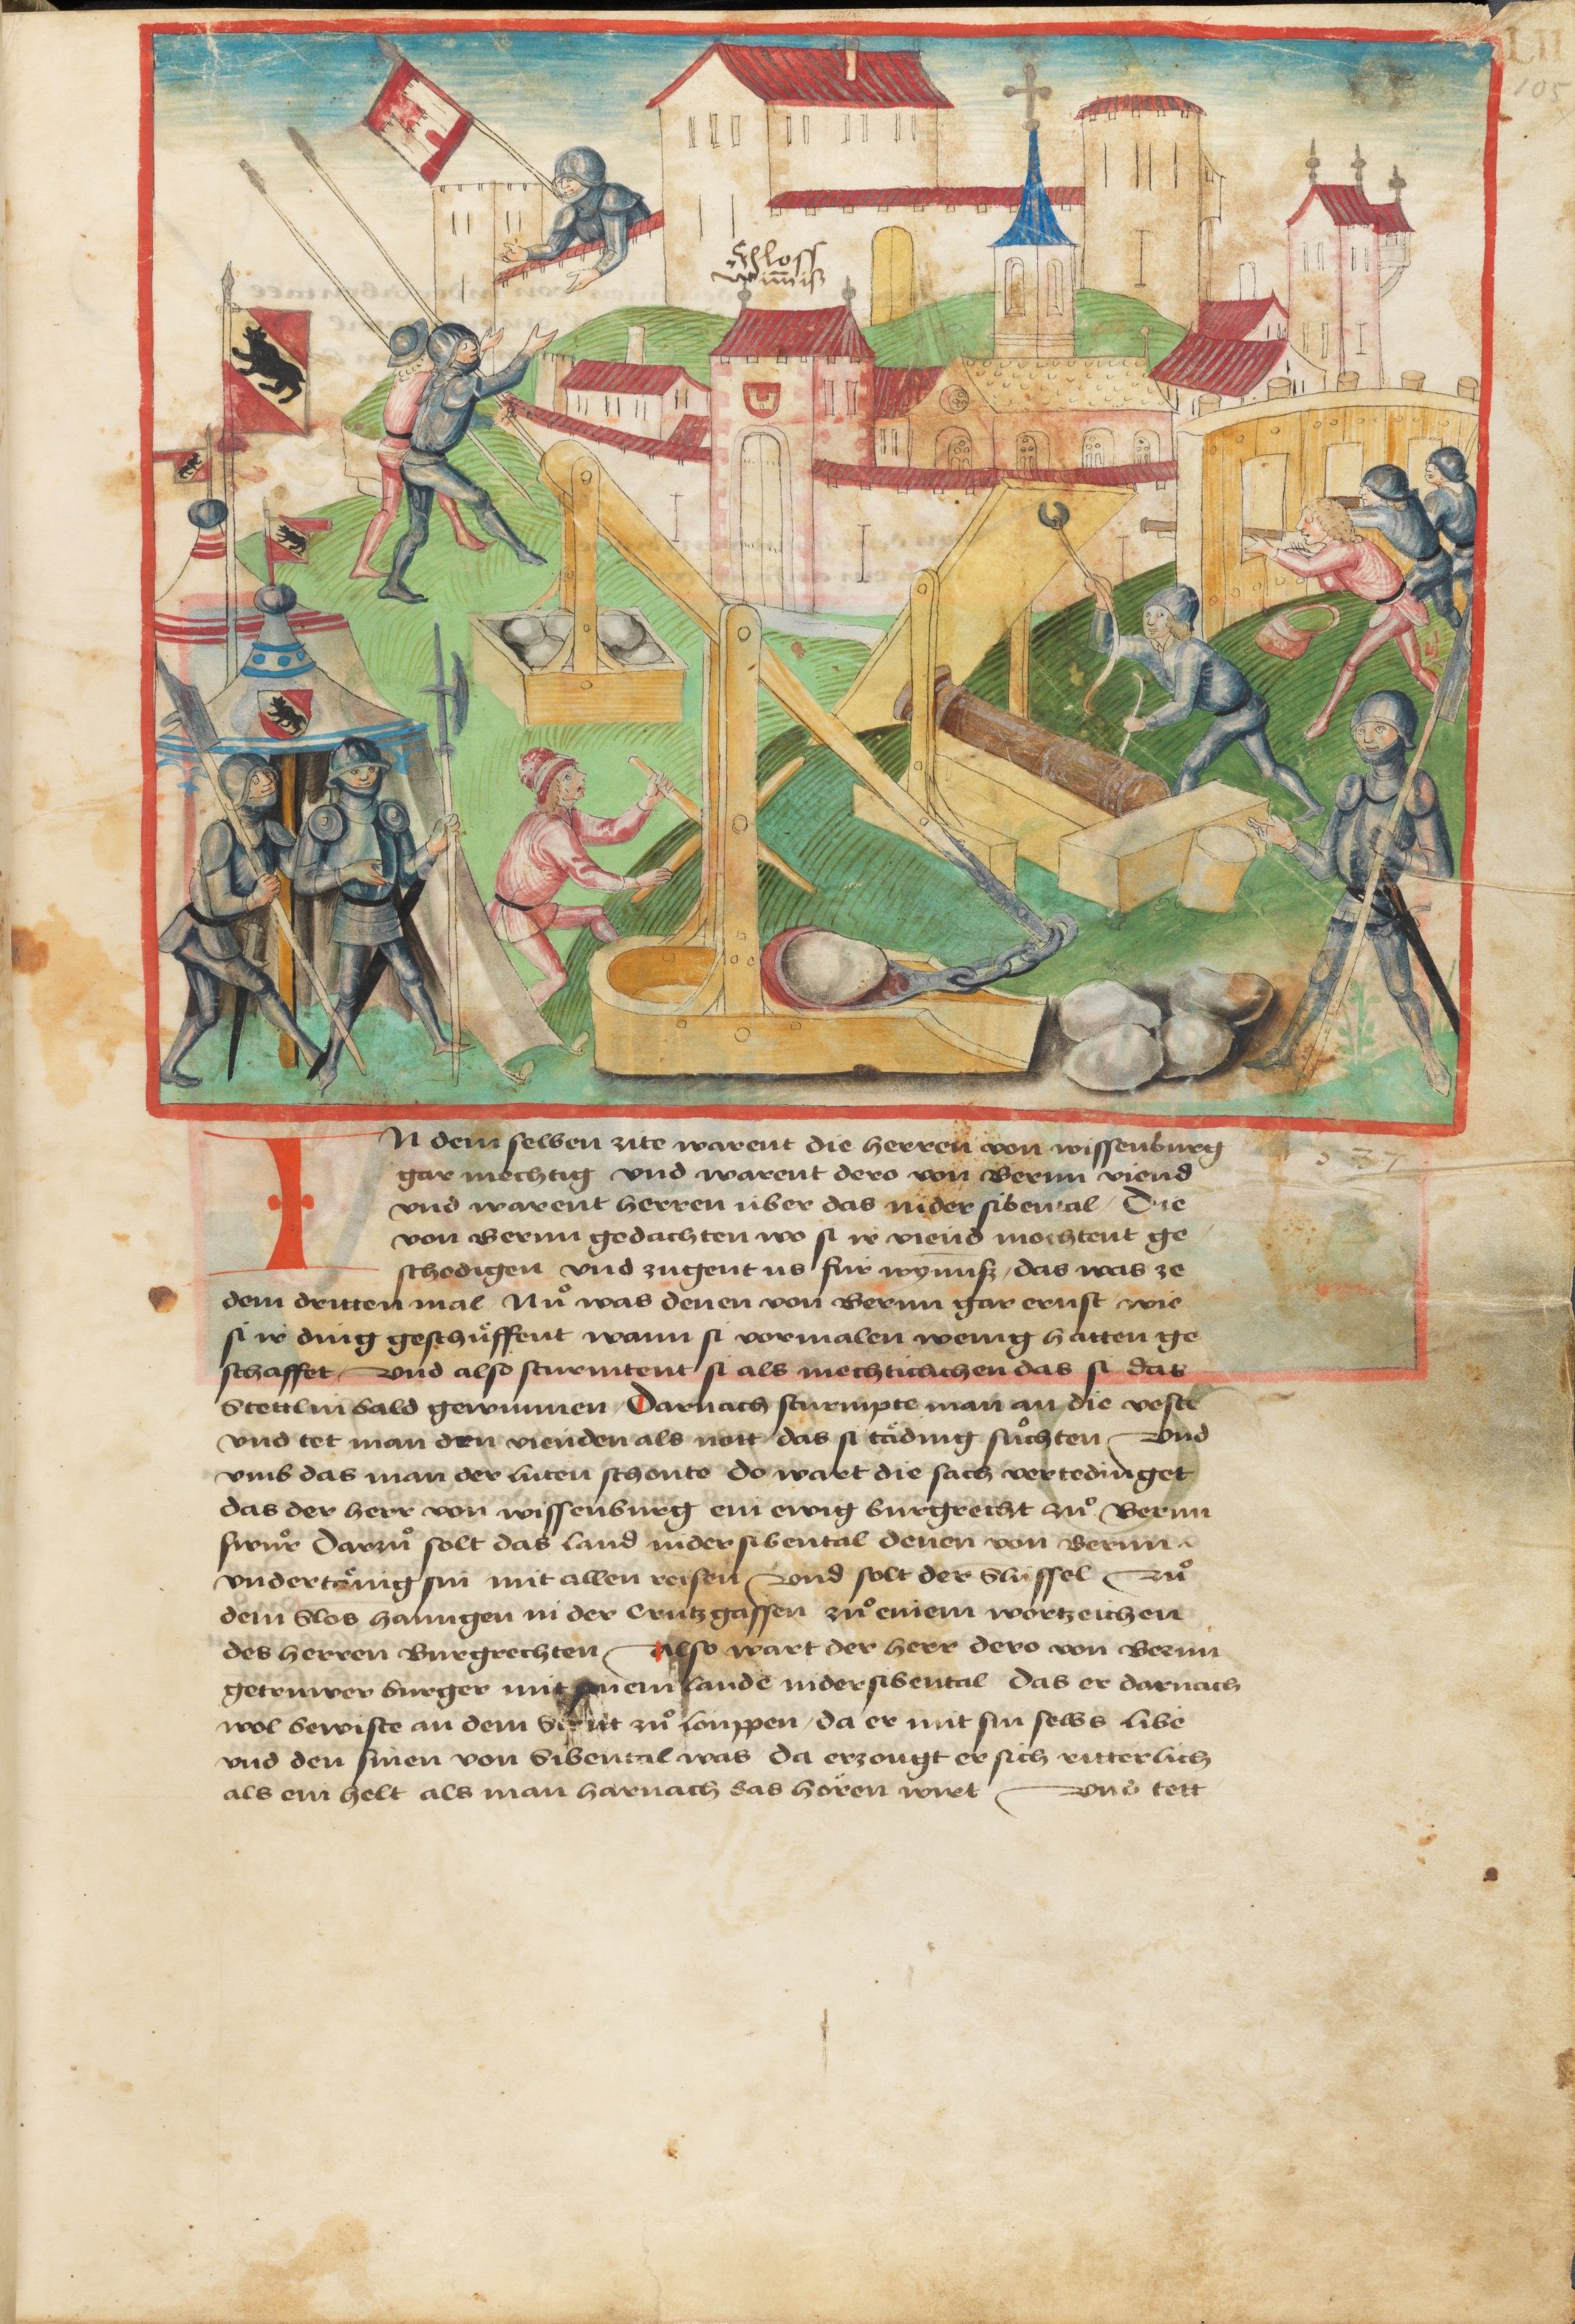 LII
105
Schloss
Wim̅iß
IN dem selben zite warent die herren von wissenburg
gar mechtig vnd warent dero von Bernn viend
vnd warent herren über das nider sibental / Die
von Bernn gedachten wo si ir viend mochtent ge
schedigen vnd zugent us für wym̅iß / das was ze
dem dritten mal Nuͦ was denen von Bernn gar ernst wie
si ir ding geschuͤffent wann si vormalen wenig hatten ge
schaffet / Vnd also sturmtent si als mechticlichen das si das
Stettlin bald gewunnen / Darnach sturmpte man an die veste
vnd tet man den vienden als nott das si täding suͦchten Vnd
vmb das man der luten schonte do wart die sach vertedinget
das der herr von wissenburg ein ewig burgrecht zuͦ Bernn
swuͦr Darzuͦ solt das land nidersibental denen von Bernn
vndertaͤnig sin mit allen reisen Vnd solt der Slüssel Zuͦ
dem Slos hanngen in der Crutzgassen zuͦ einem wortzeichen
des herren Burgrechten Also wart der herr dero von Bernn
getruwer burger mit sinem lande nidersibental Das er darnach
wol bewiste an dem Stritt zuͦ louppen / da er mit sin selbs libe
vnd den sinen von Sibental was da erzougt er sich ritterlich
als ein helt als man harnach das hören wirt Vnd tett